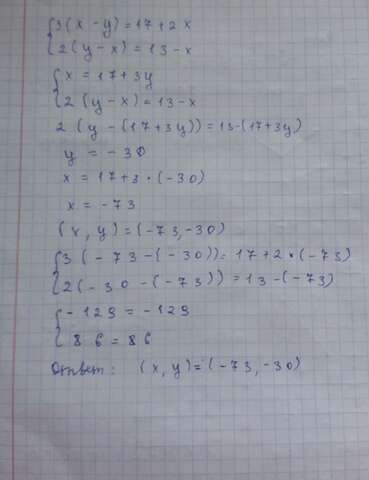 3(x-y)=17+2x
2(y-x)=13-x
x=17+3y
2(y-x)=13-x
2(y-(17+3y))=13-(17+3y)
y=-30
x=17+3•(-30)
x=-73
(x,y)=(-73,-30)
3(-73-(-30))=17+2•(-73)
2(-30-(-73))=13-(-73)
-129=-129
86=86
Ответ: (x,y)=(-73,-30)